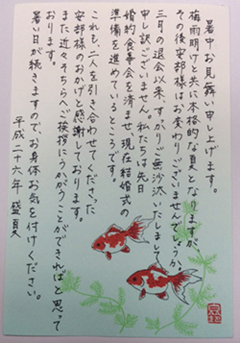 暑中お見舞い申し上げます。
梅雨明けと共に本格的な夏となりますが、
その後安部様はお変わりございませんでしょうか。
三月の退会以来、すがりご無沙汰いたしまして
申し訳ございません。私たちは先日
婚約食事会を済ませ、現在結婚式の
準備を進めているところです。
これも、二人を引き合わせてくださった
安部様のおかげと感謝しております。
また近々そちらへご挨拶にうかがうことができればと思って
おります。
暑い日が続きますので、お身体お気を付けください。
平成二十六年 盛夏